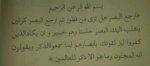 بسم الله الرحمن الرحيم
فارجع البصر هل ترى من فطور ثم ارجع البصر كرتين
ينقلب إليك البصر خاسئا وهو حسير و ان يكاد الذين
كفروا ليزلقونك بابصارهم لما سمعوا الذكر ويقولون
انه لمجنون وما هو الا ذكر للعالمين